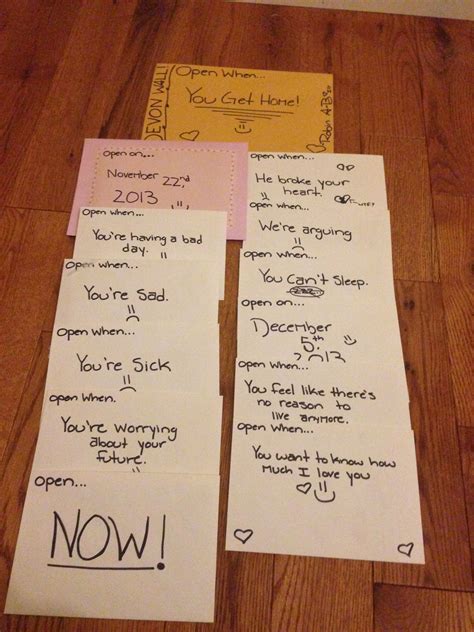 DEVON WALL!
Open When...
You Get Home!
Open on...
November 22nd
2013
Open When...
You're having a bad
day.
Open When...
You're Sad.
Open When...
You're Sick
Open When.
You're worrying
about your
future.
Open...
NOW!
Open when...
He broke your
heart.
Open When...
We're arguing
Open when...
You Can't Sleep.
Open on...
December
5th
2013
Open When...
You feel like there's
no reason to
live anymore.
Open When...
You want to know how
much I love you